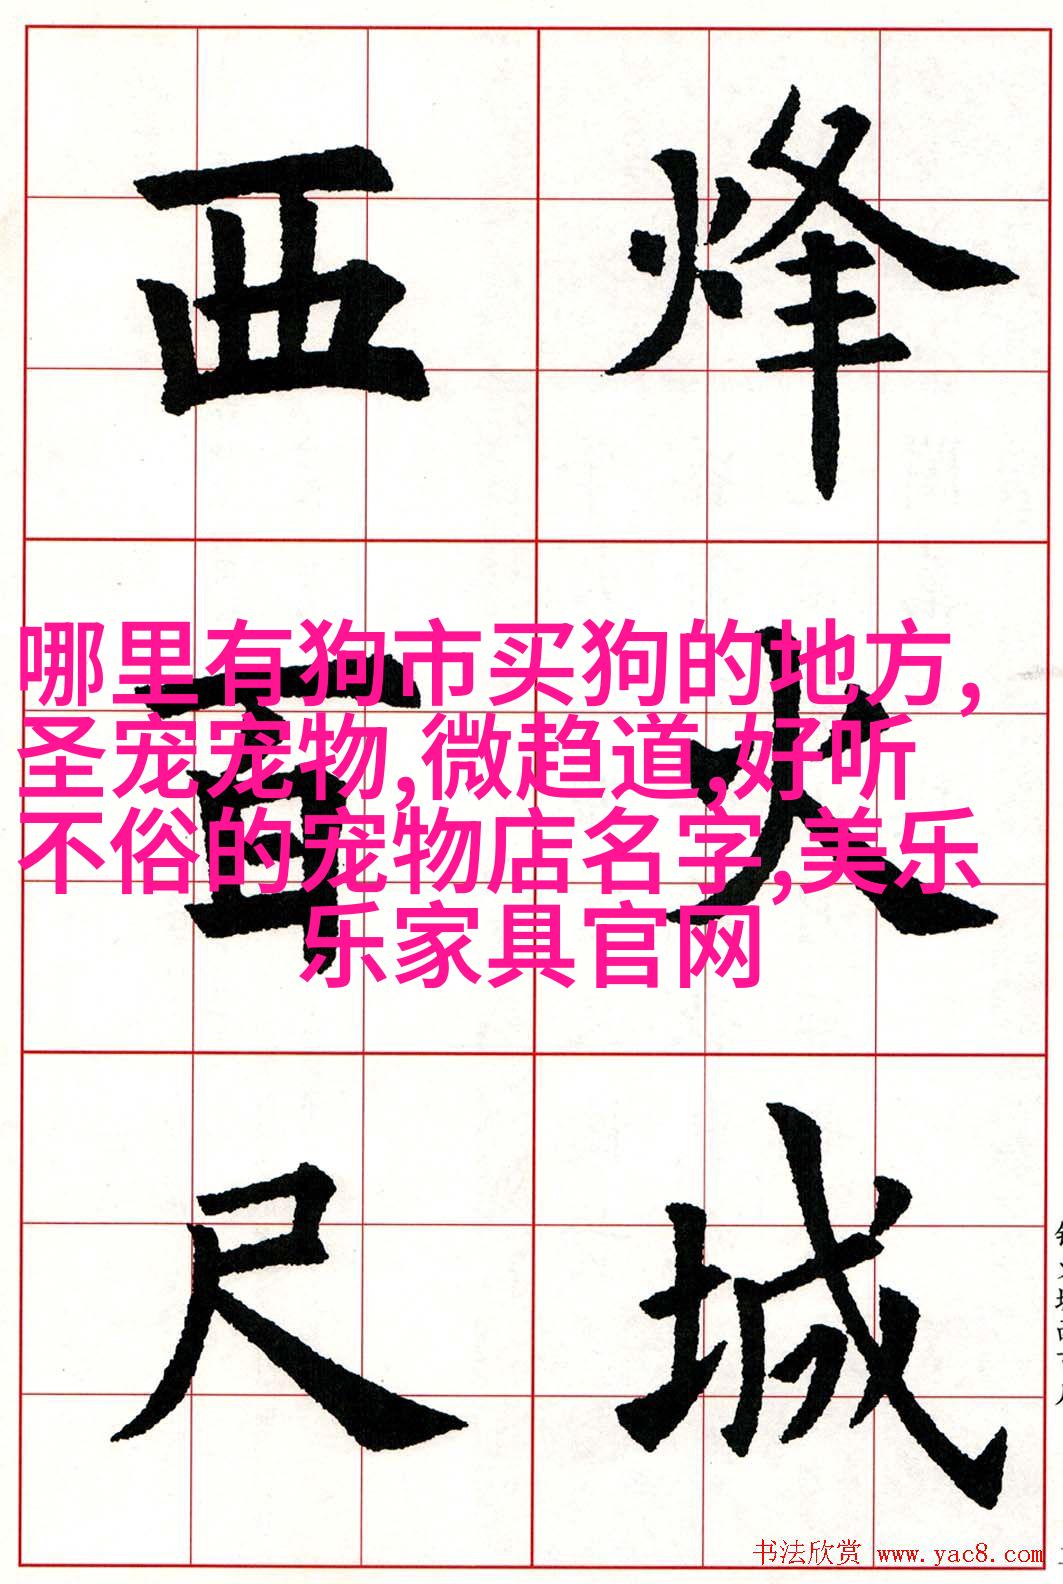 烽火城
西百尺
哪里有狗市买狗的地方,
圣宠宠物,微趋道,好听
不俗的宠物店名字,美乐
乐家具官网
书法欣赏 www.yac8.com